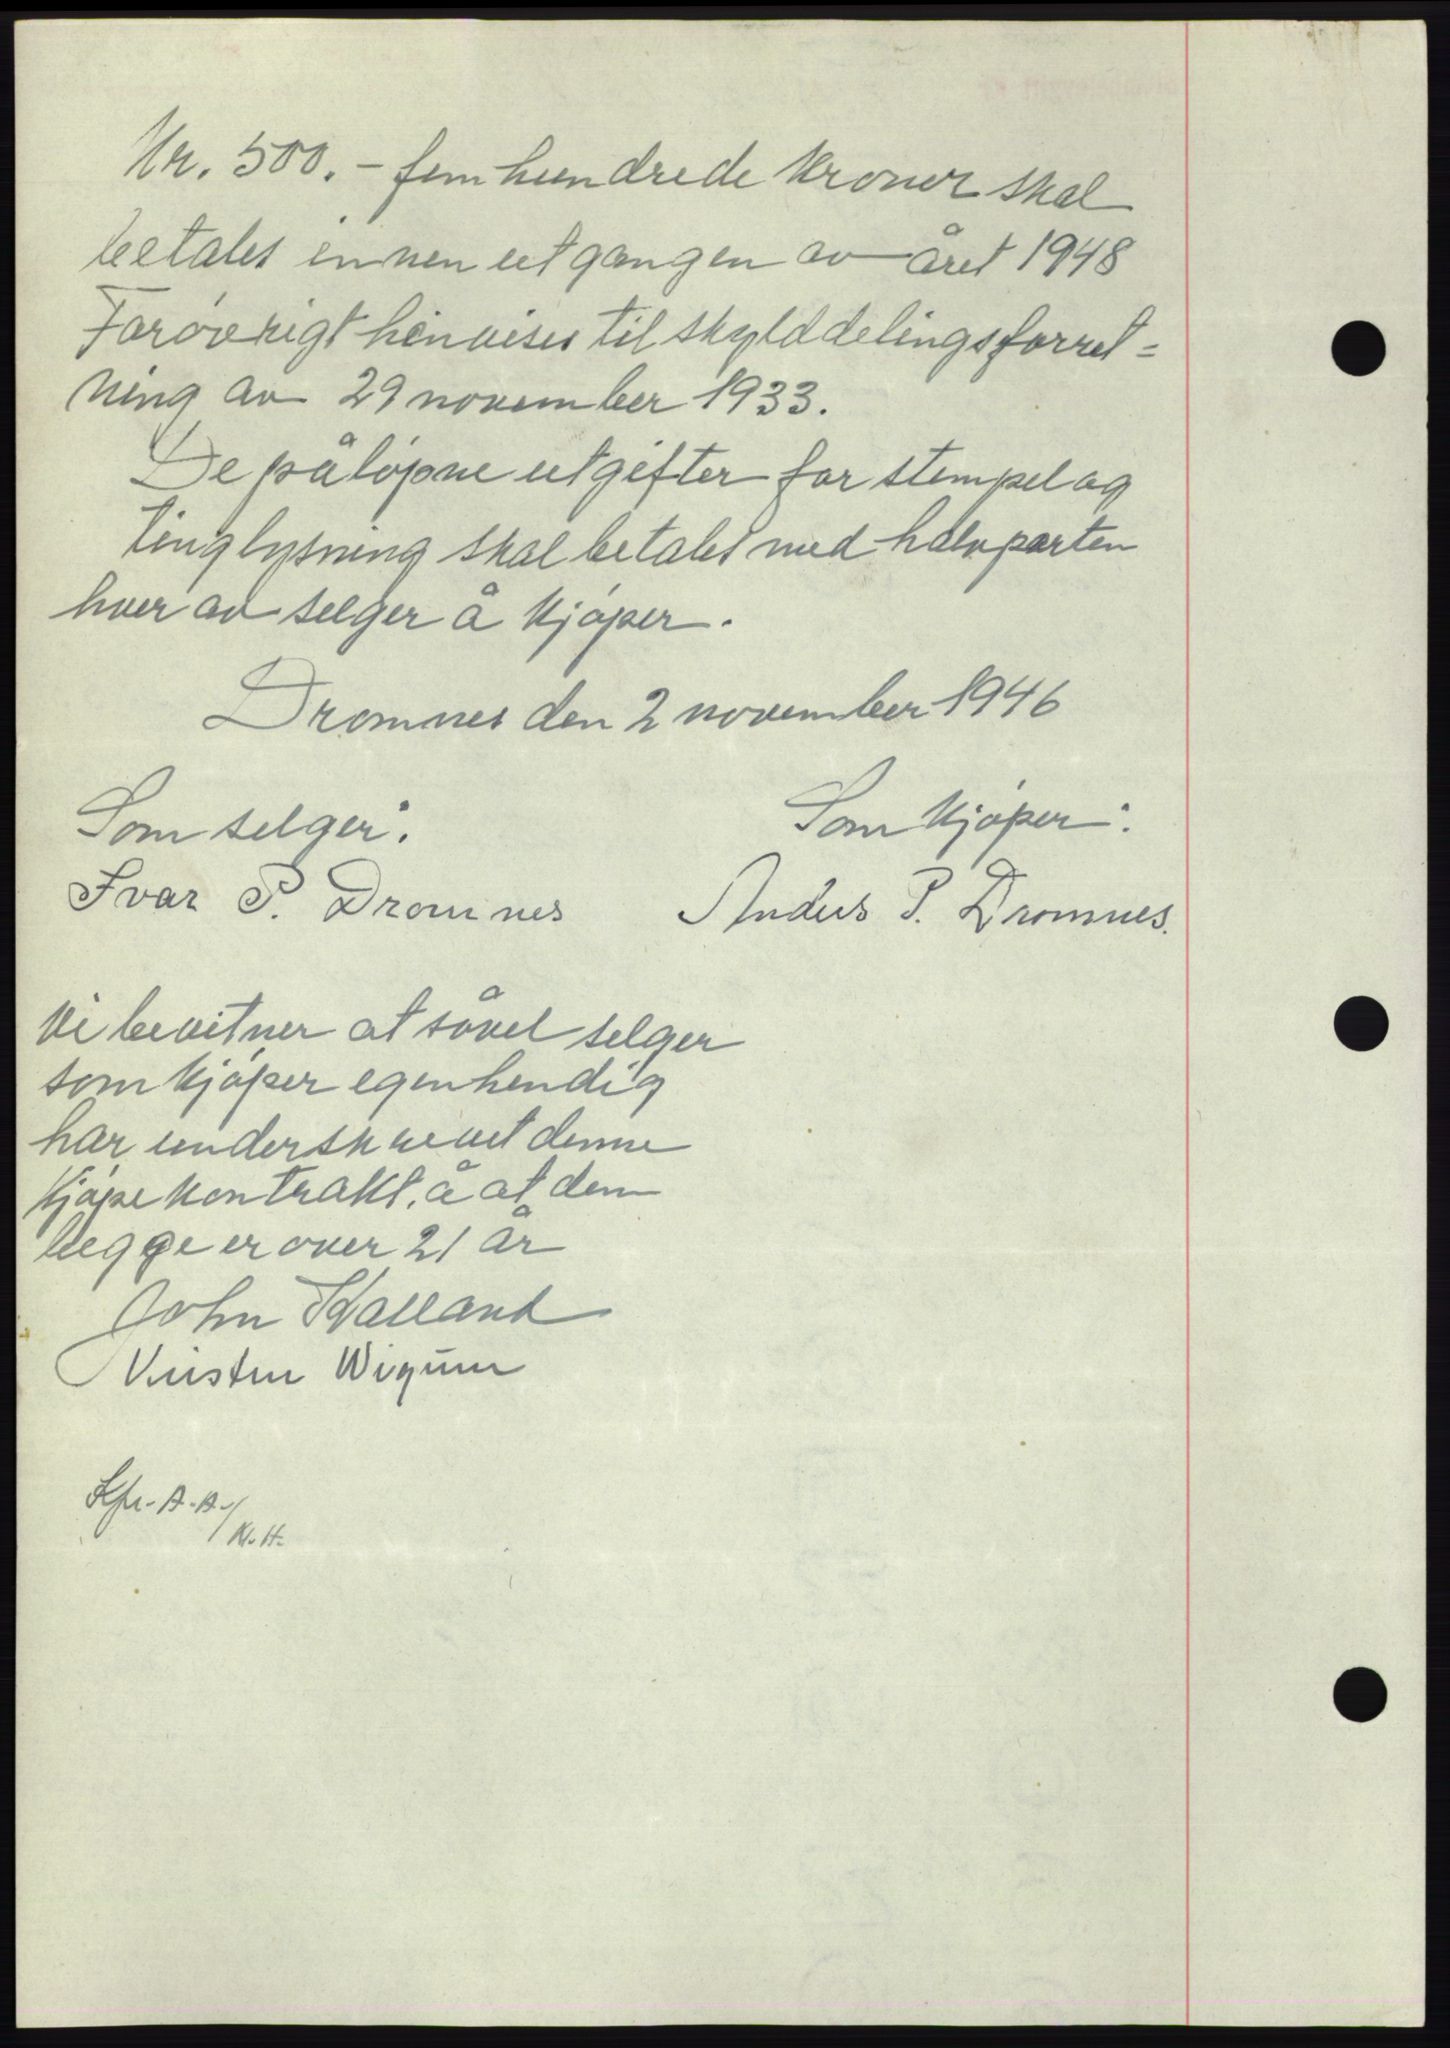 Kr. 500.- femhundrede kroner skal
betales innen utgangen av året 1948
Forøvrigt henvises til skylddelingsforret=
ning av 29 november 1933.
De påløpne utgifter for stempel og
tinglysning skal betales med halvparten
hver av selger å kjøper.
Dromnes den 2 november 1946
Som selger: Som kjøper:
Ivar P. Dromnes Anders P. Dromnes.
Vi bevitner at såvel selger
som kjøper egenhendig
har underskrevet denne
kjøpekontrakt, å at dem
begge er over 21 år
John Halland
Kirsten Wigum
A.A./
K.H.